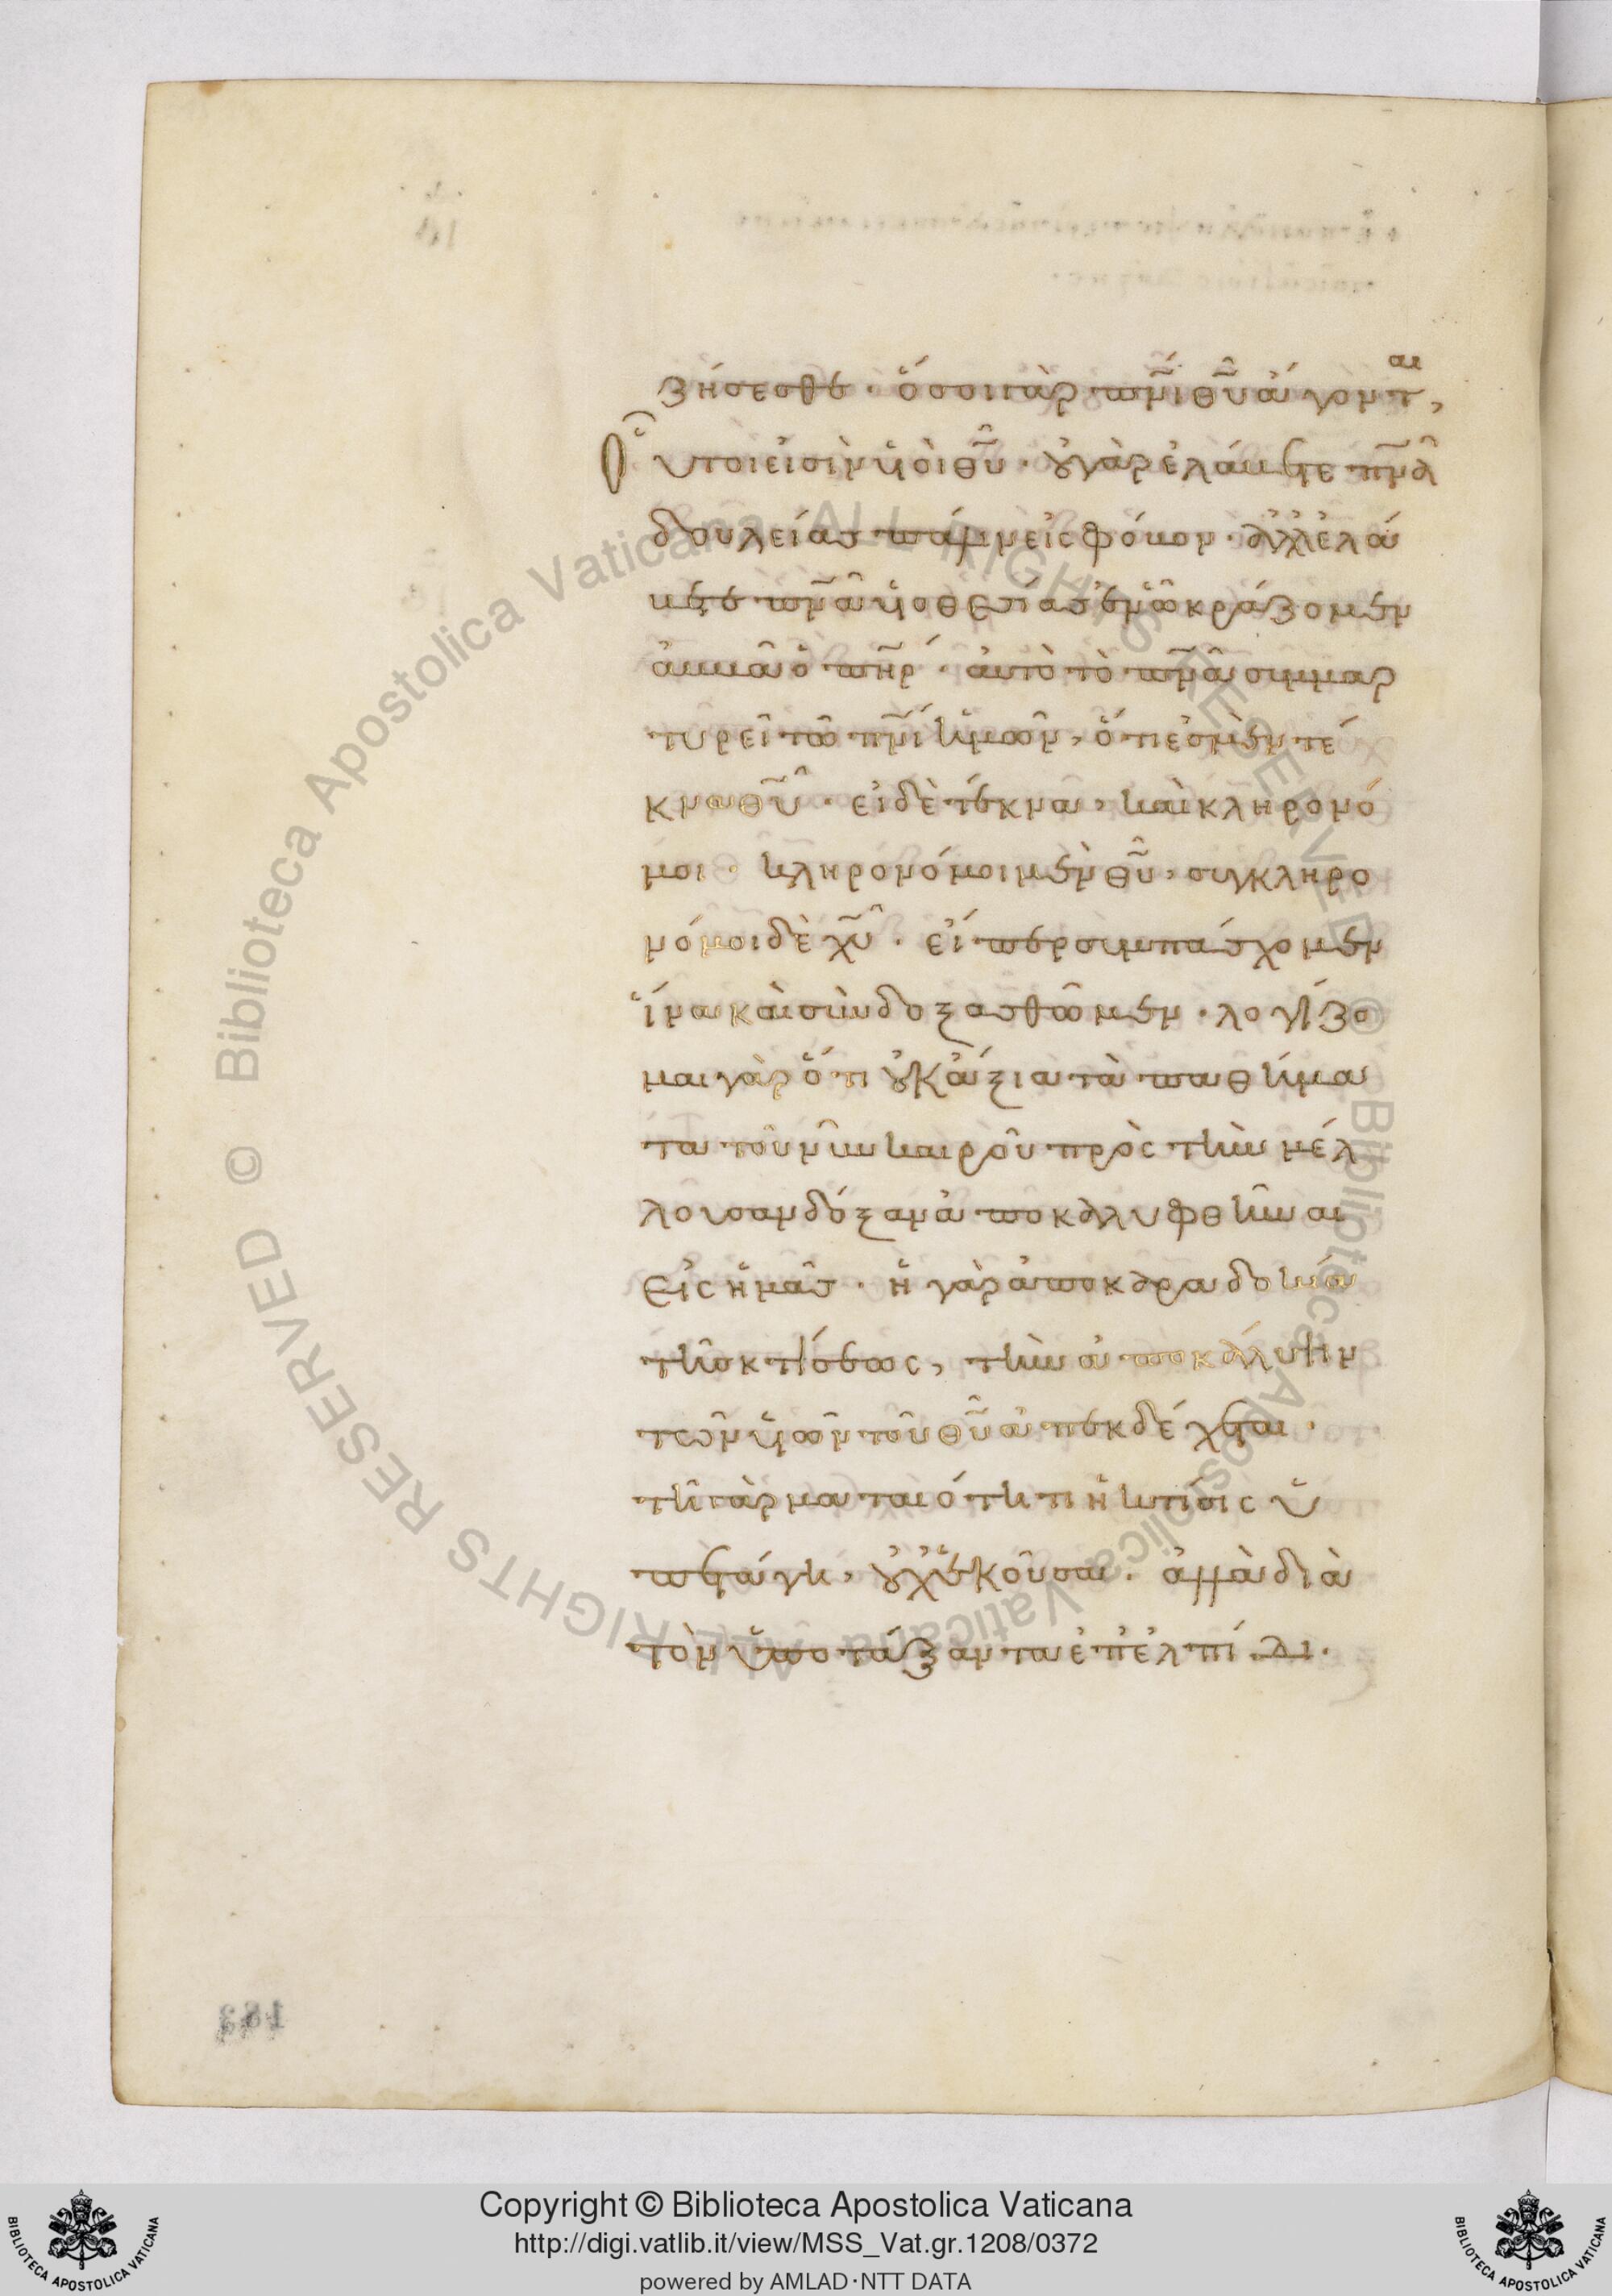 ζήσεσθε· ὅσοι γὰρ πν̅ι θυ̅ ἄγονται,
Οὗτοι εἰσὶν υἱοὶ θυ̅· οὐ γὰρ ἐλάβετε πν̅α
δουλείας πάλιν εἰς φόβον· ἀλλ' ἐλά
βετε πν̅α υἱοθεσίας ἐν ὧ κράζομεν
ἀββᾶ ὁ πη̅ρ· αὐτὸ τὸ πν̅α συμμαρ
τυρεῖ τῶ πν̅ι ἡμῶν, ὅτι ἐσμὲν τέ
κνα θυ̅· εἰ δὲ τέκνα, καὶ κληρονό
μοι· κληρονόμοι μὲν θυ̅, συγκληρο
νόμοι δὲ χυ̅· εἴπερ συμπάσχομεν
ἵνα καὶ συνδοξασθῶμεν· λογίζο
μαι γὰρ ὅτι οὐκ ἄξια τὰ παθήμα
τα τοῦ νῦν καιροῦ πρὸς τὴν μέλ
λουσαν δόξαν ἀποκαλυφθῆναι
εἰς ἡμᾶς· ἡ γὰρ ἀποκαραδοκία
τῆς κτίσεως, τὴν ἀποκάλυψιν
τῶν υἱῶν τοῦ θυ̅ ἀπεκδέχεται·
τῆ γὰρ ματαιότητι ἡ κτίσις ὑ
πετάγη, οὐχ ἑκοῦσα· ἀλλὰ διὰ
τὸν ὑποτάξαντα ἐπ' ἐλπίδι·
183
Copyright © Biblioteca Apostolica Vaticana
http://digi.vatlib.it/view/MSS_Vat.gr.1208/0372
powered by AMLAD·NTT DATA
© Biblioteca Apostolica Vaticana ALL RIGHTS RESERVED
© Biblioteca Apostolica Vaticana ALL RIGHTS RESERVED
BIBLIOTECA APOSTOLICA VATICANA
BIBLIOTECA APOSTOLICA VATICANA